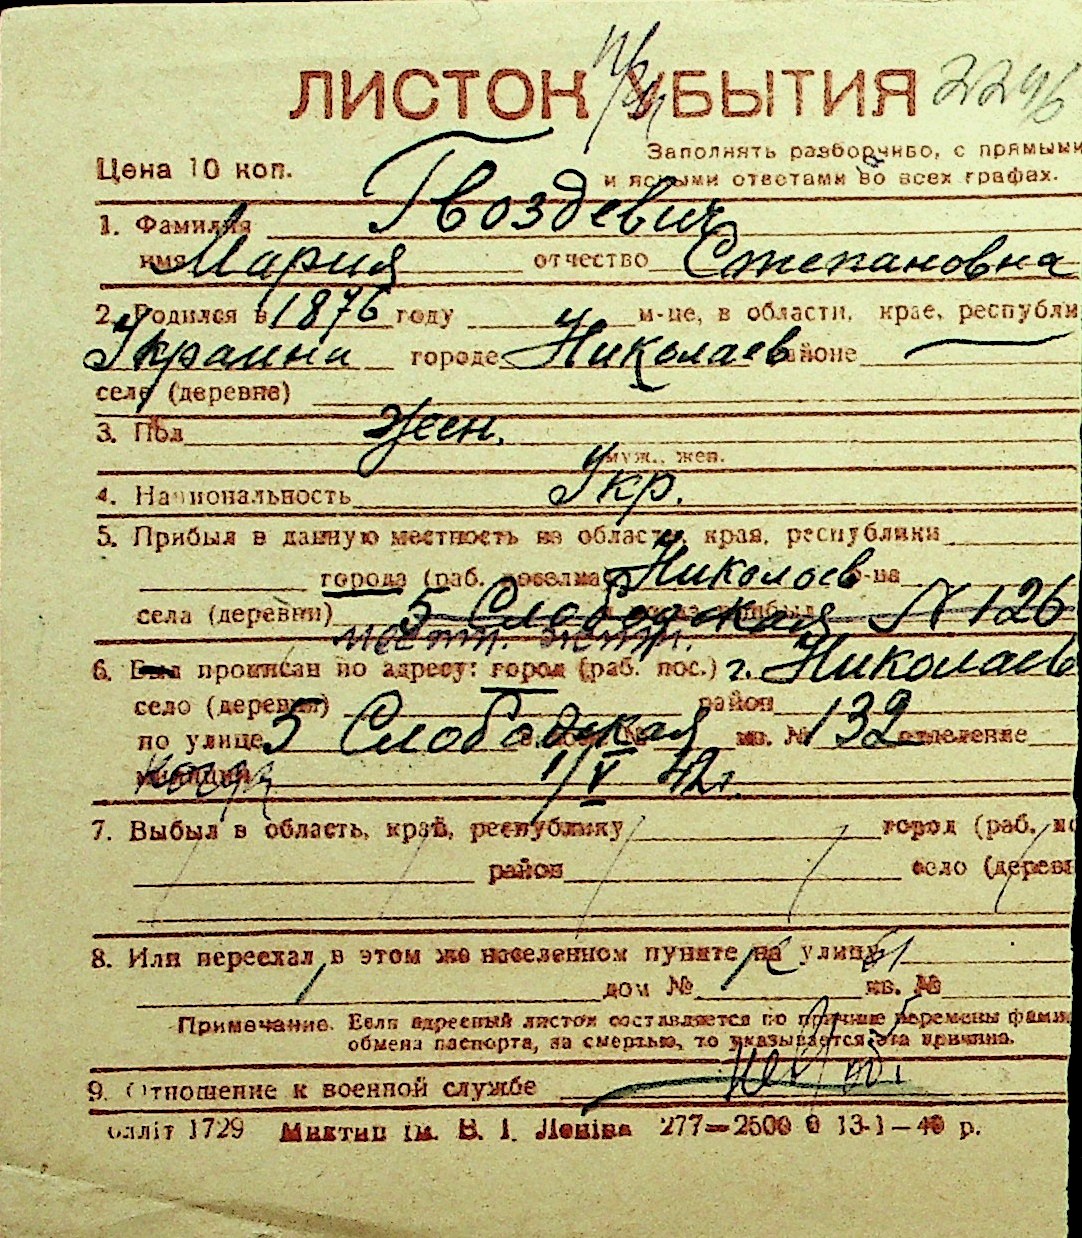 ЛИСТОК УБЫТИЯ
Цена 10 коп.
Заполнять разборчиво, с прямыми
и ясными ответами во всех графах.
1. Фамилия Гвоздевич
имя Мария отчество Степановна
2. Родился в 1876 году м-це, в области, крае, республи
Украина городе Николаев районе —
селе (деревне)
3. Пол жен.
муж., жен.
4. Национальность Укр.
5. Прибыл в данную местность из области, края, республики
города (раб. поселка Николаев р-на
села (деревни) 5 Слободская N 126
мест. жит.
6. Был прописан по адресу: город (раб. пос.) г. Николаев
село (деревня) район
по улице 5 Слободская кв. № 132 отделение
милиции 1/V 42 г.
7. Выбыл в область, край, республику город (раб. по
район село (деревн
8. Или переехал в этом же населенном пункте на улицу
дом № кв. №
Примечание. Если адресный листок составляется по причине перемены фами
обмена паспорта, за смертью, то указывается эта причина.
9. Отношение к военной службе
блліт 1729 Миктип ім. В. І. Леніна 277—2500 0 13-1—40 р.